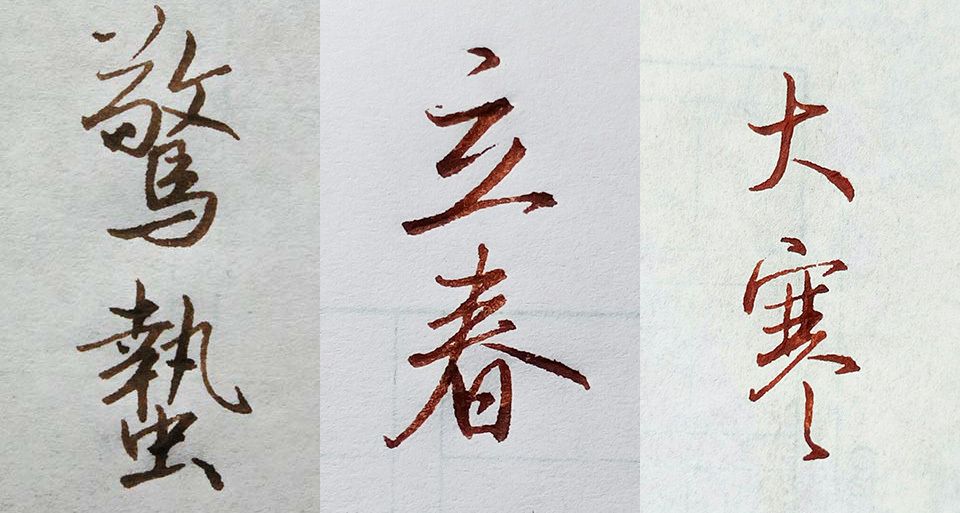 驚蟄
立春
大寒